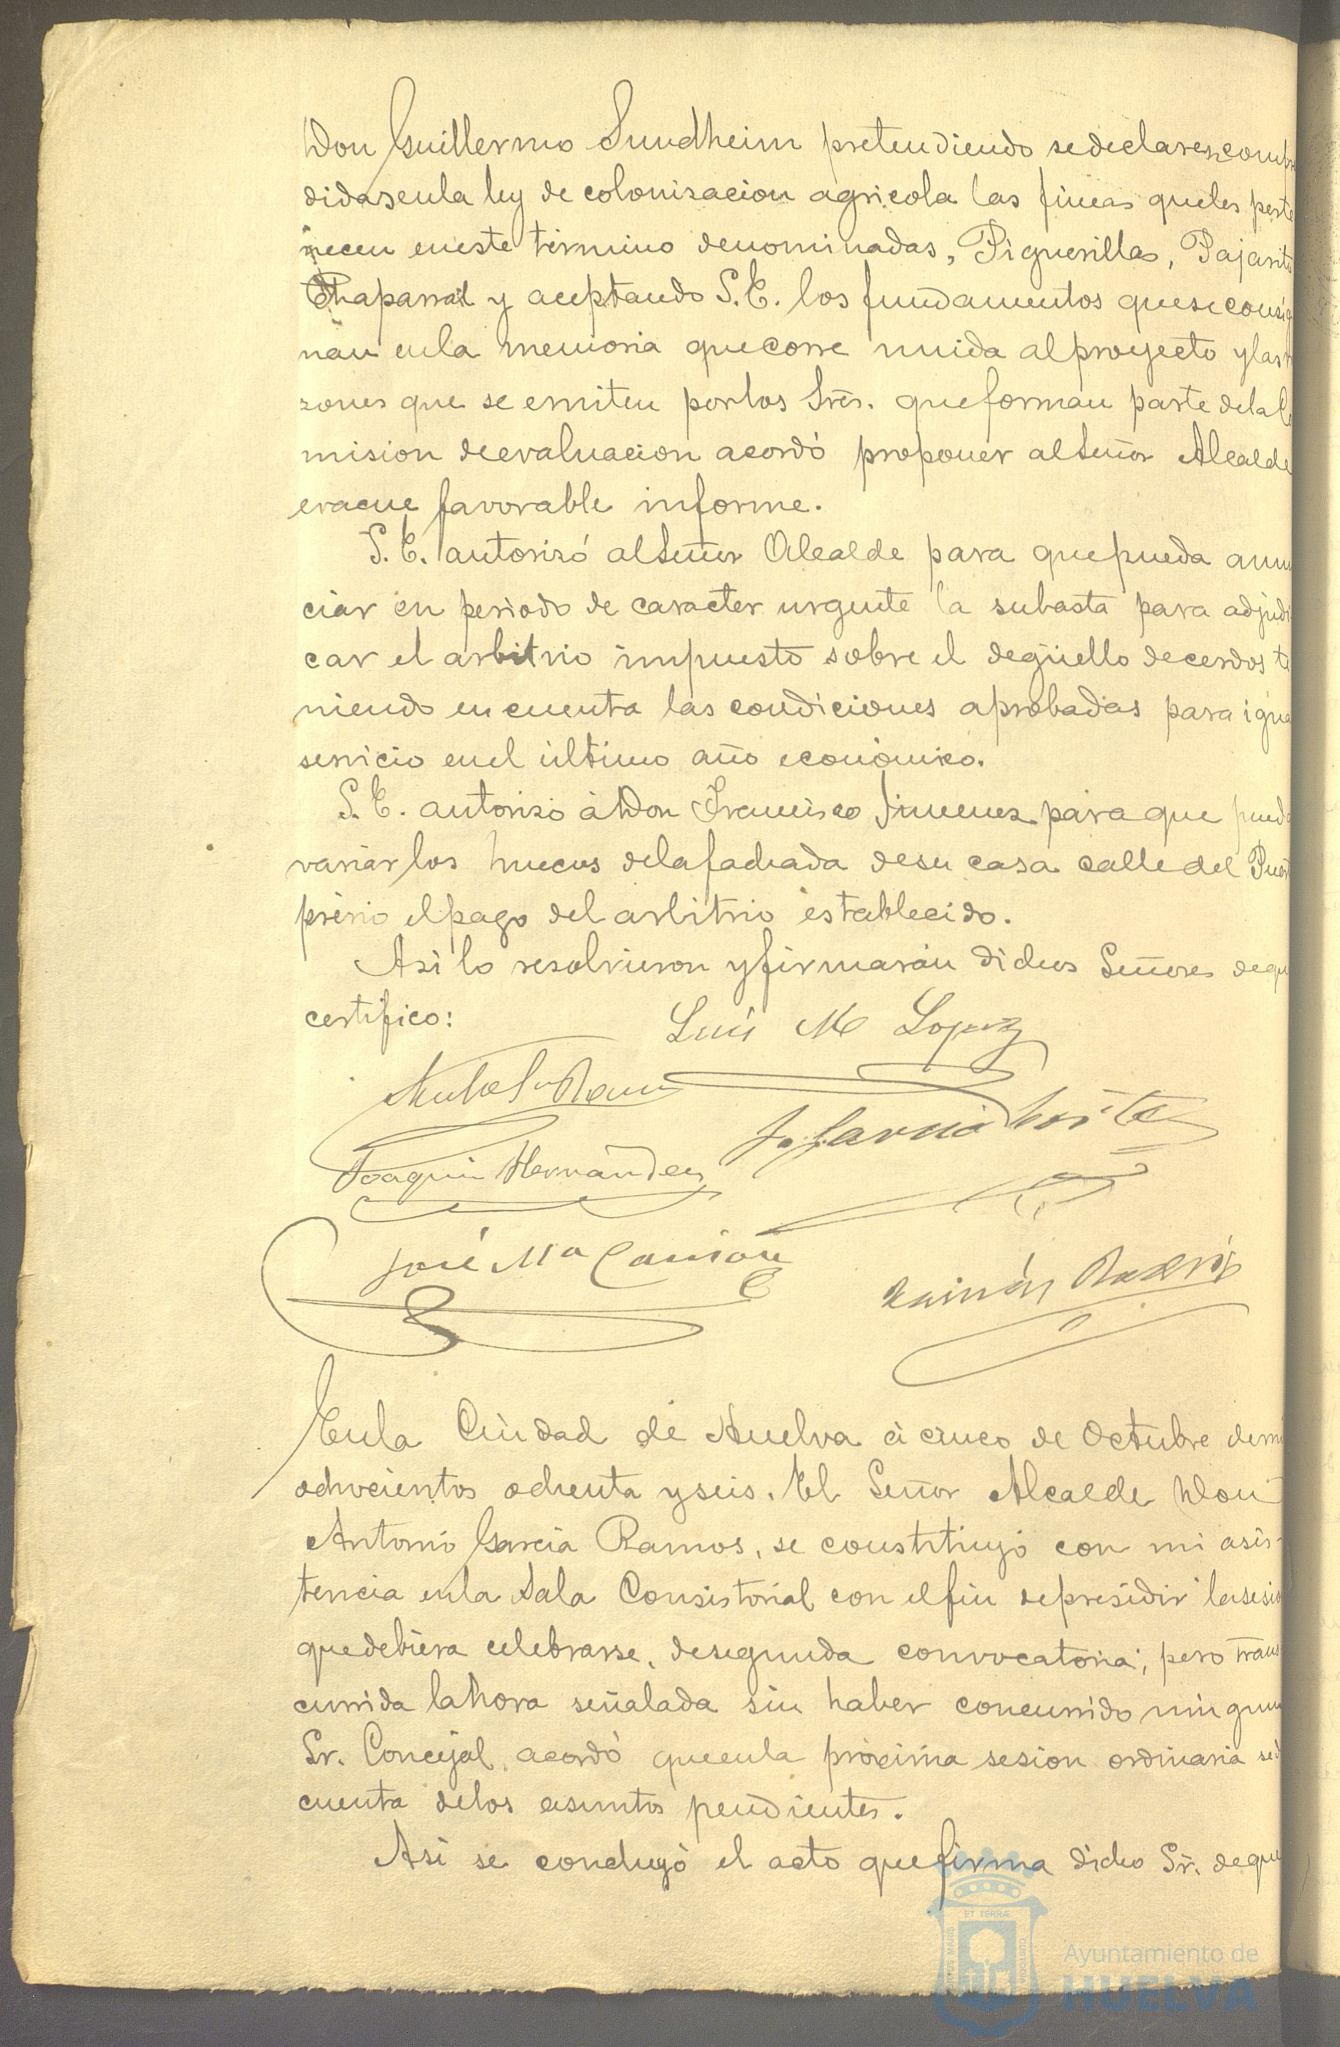 Don Guillermo Sundheim pretendiendo se declaren compre
didas en la ley de colonisacion agricola las fincas que les perte
necen en este término denominadas, Piguerillas, Pajarito
Chaparral y aceptando S.E. los fundamentos que se consig
nan en la memoria que corre unida al proyecto y las r
zones que se emiten por los Sres. que forman parte de la Co
mision de evaluacion acordó proponer al Señor Alcalde
evacue favorable informe.
S.E. autorizó al Señor Alcalde para que pueda anun
ciar en periodo de caracter urgente la subasta para adjudi
car el arbitrio impuesto sobre el degüello de cerdos te
niendo en cuenta las condiciones aprobadas para igua
servicio en el último año económico.
S.E. autorizo á Don Francisco Jimenez para que pueda
variar los huecos de la fachada de su casa calle del Puert
prévio el pago del arbitrio establecido.
Asi lo resolvieron y firmarán dichos Señores de que
certifico:
Luis M Lopez
J. Garcia
Joaquin Hernandez
José Mª
Ramón
En la Ciudad de Huelva á cinco de Octubre de mi
ochocientos ochenta y seis. El Señor Alcalde Don
Antonio Garcia Ramos, se constituyó con mi asis-
tencia en la Sala Consistorial con el fin de presidir la sesio
que debiera celebrarse, de segunda convocatoria; pero trans
currida la hora señalada sin haber concurrido ningun
Sr. Concejal, acordó que en la próxima sesion ordinaria se d
cuenta de los asuntos pendientes.
Asi se concluyó el acto que firma dicho Sr. de que
Ayuntamiento de
HUELVA